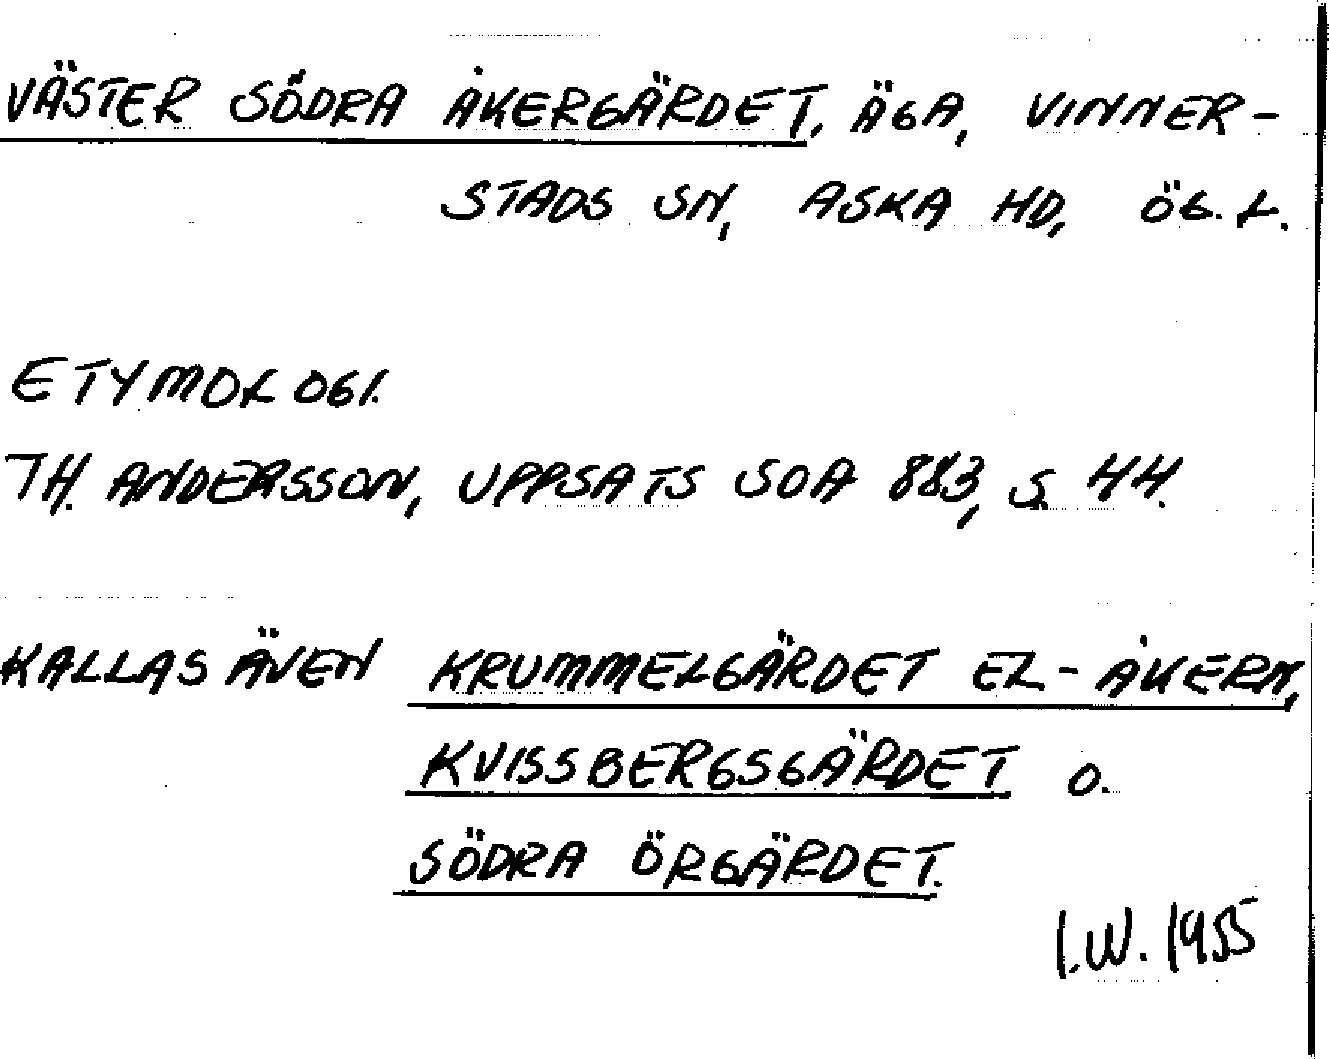 VÄSTER SÖDRA ÅKERGÄRDET, ÄGA, VINNER-
STADS SN, ASKA HD, ÖG. L.
ETYMOLOGI.
TH. ANDERSSON, UPPSATS SOA 883, S. 44.
KALLAS ÄVEN KRUMMELGÄRDET EL - ÅKERN,
KVISSBERGSGÄRDET O.
SÖDRA ÖRGÄRDET.
I.W. 1955